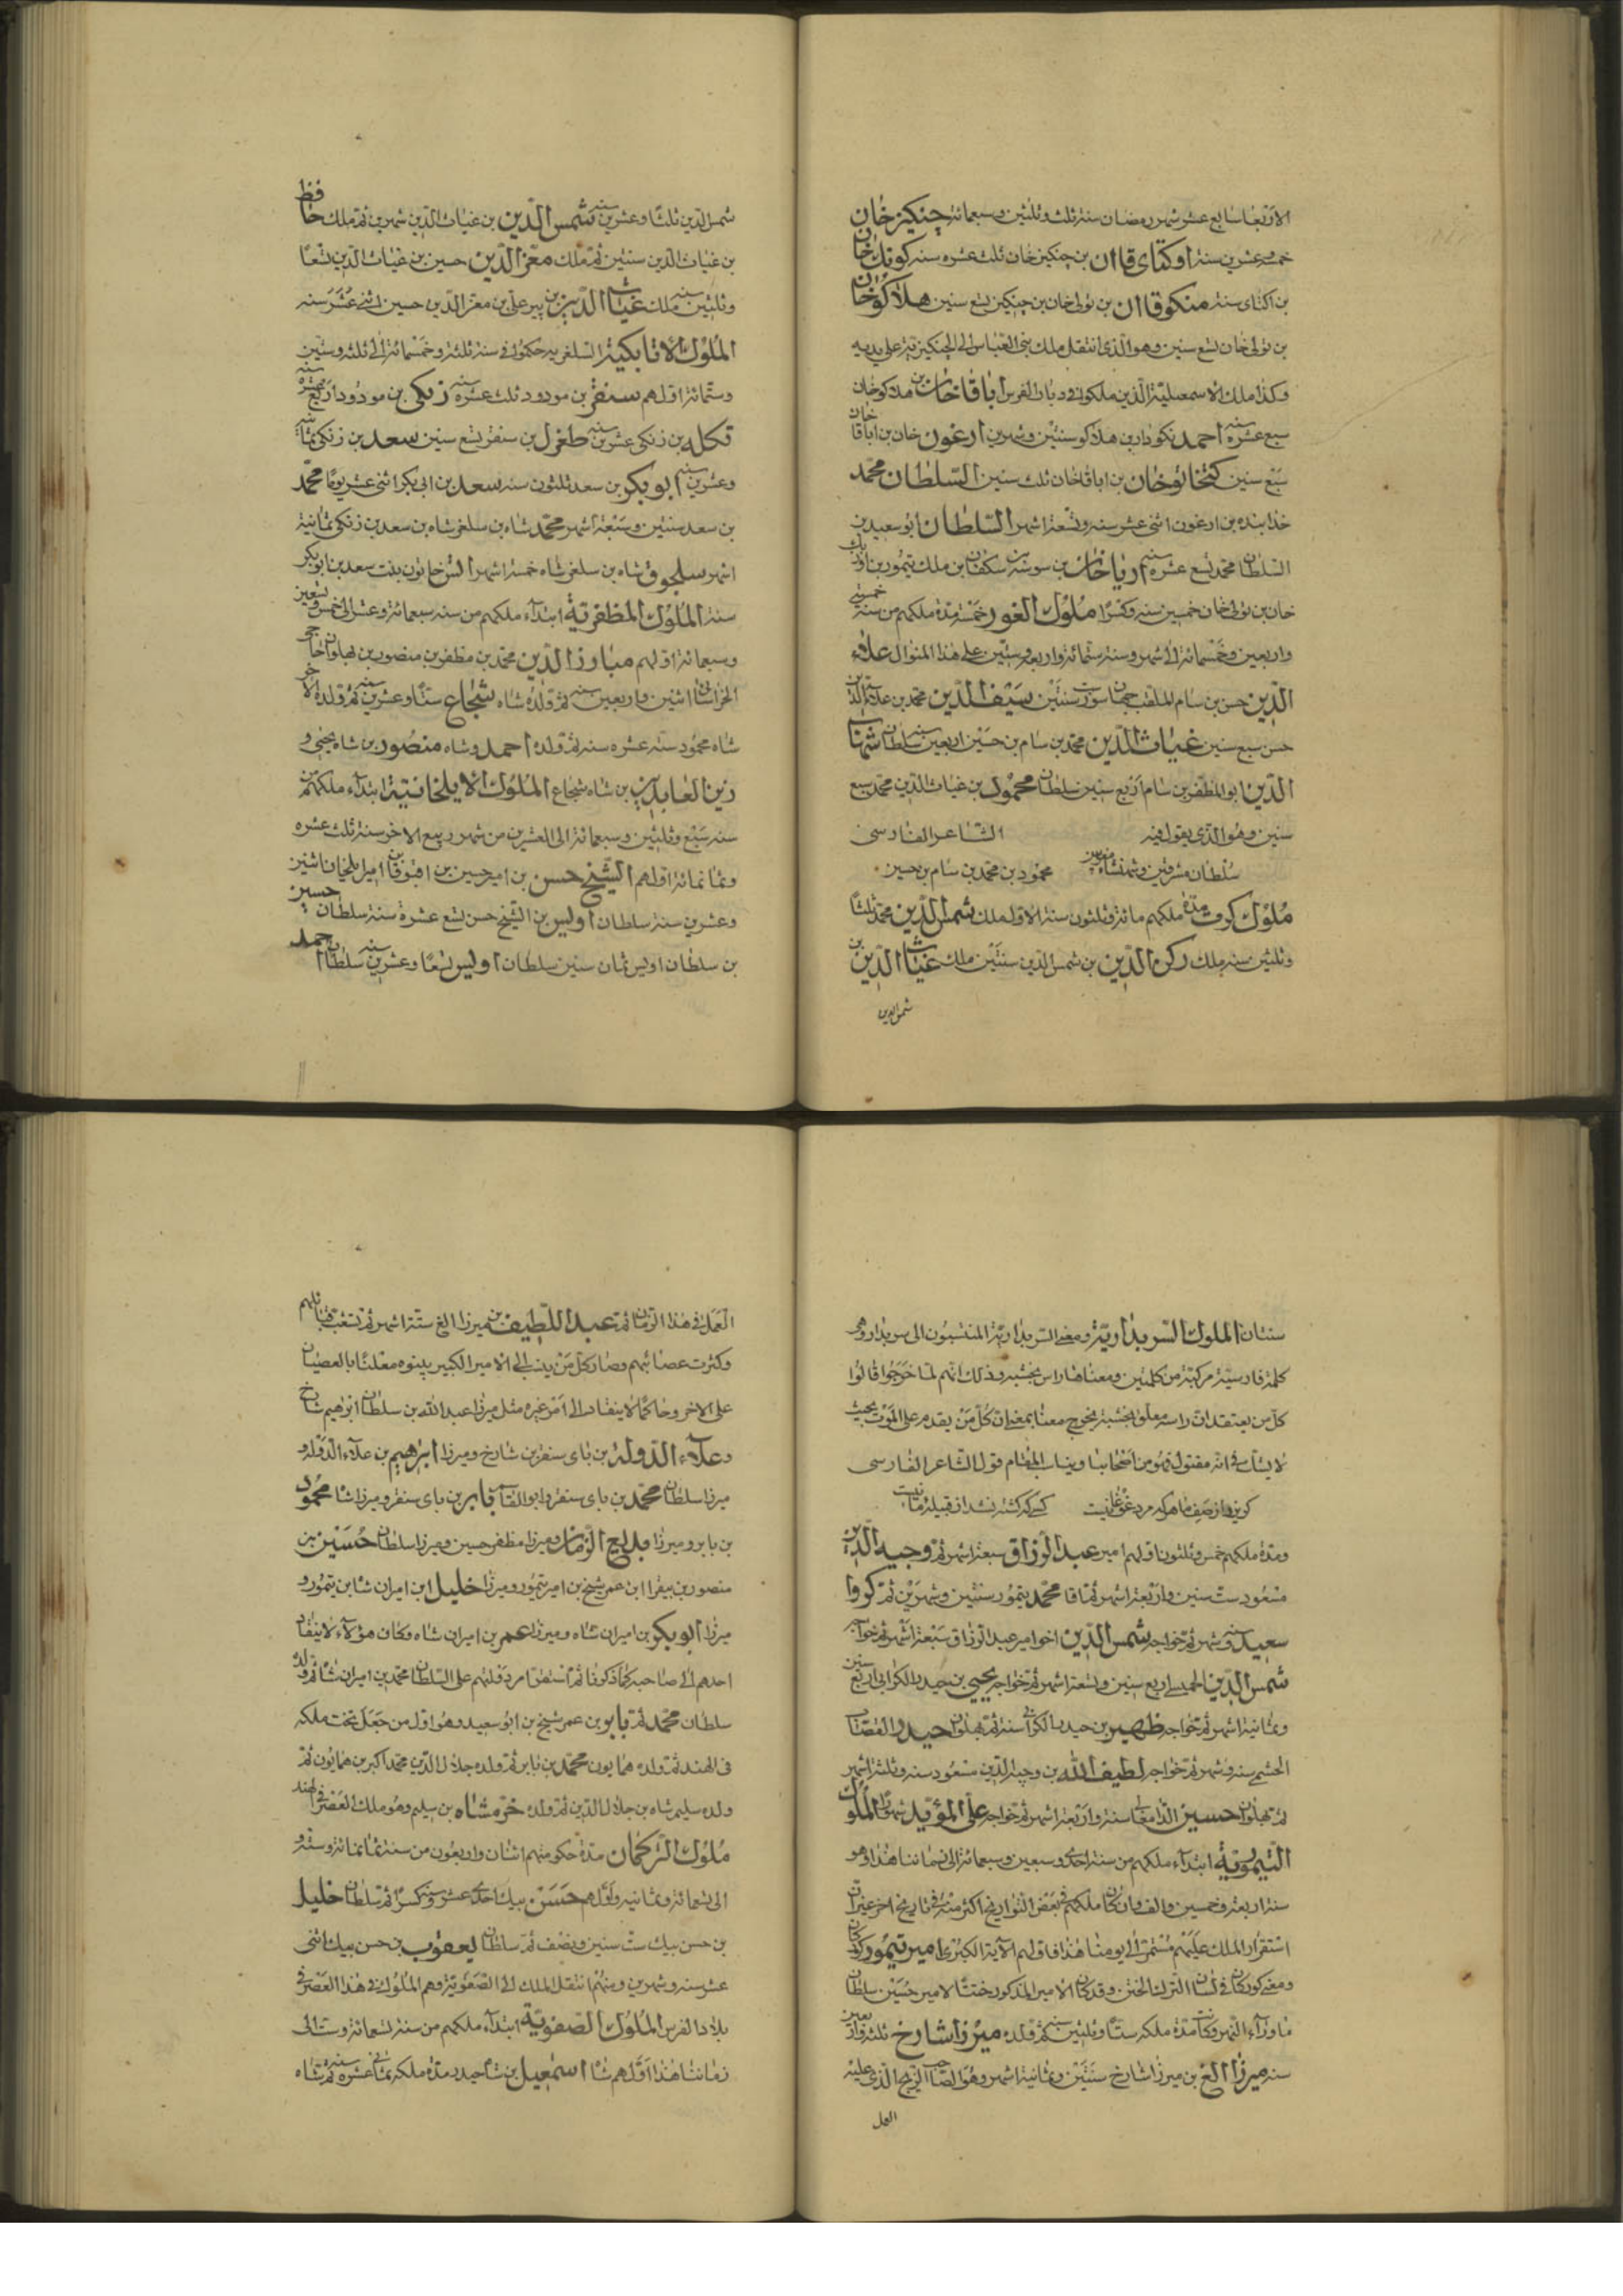 الاربعا سابع عشر شهر رمضان سنة ثلث وثلثين وسبعمائة جنكيز خان
خمس وعشرين سنة اوكتاى قاان بن جنكيز خان ثلث عشره سنه كوتك خان
بن اكتاى سنة منكو قاان بن تولى خان بن جنكيز تسع سنين هلاكو خان
بن تولى خان تسع سنين وهو الذى انتقل ملك بنى العباس الى الجنكيزية على يديه
وكذا ملك الاسمعيلية الذين ملكوا فى ديار الفرس اباقا خان بن هلاكو خان
سبع عشره سنه احمد نكودار بن هلاكو سنتين وشهرين ارغون خان بن اباقا خان
سبع سنين كنجاتو خان بن اباقا خان ثلث سنين السلطان محمد
خدابنده بن ارغون اثنى عشر سنه وتسعة اشهر السلطان ابو سعيد بن
السلطان محمد تسع عشره سنه ارپا خان بن سوسه بن سنكقان بن ملك تيمور بن
خان بن تولى خان خمسين سنه وكسرا ملوك الغور خمسة مدة ملكهم من سنة خمسة
واربعين وخمسمائة الى شهر وسنة ستمائة واربعة وستين على هذا المنوال علاء
الدين حسن بن سام الملقب جهان سوز ست سنين سيف الدين محمد بن علاء الدين
حسن سبع سنين غياث الدين محمد بن سام بن حسين اربعين سنه سلطان شهاب
الدين ابو المظفر بن سام اربع سنين سلطان محمود بن غياث الدين محمد سبع
سنين وهو الذى يقول فيه الشاعر الفارسى
سلطان مشرقين وشهنشاه مغربين محمود بن محمد بن سام بن حسين
ملوك كرت مدة ملكهم مائة وثلثون سنة الاول ملك شمس الدين محمد ثلثا
وثلثين سنه ملك ركن الدين بن شمس الدين سنتين ملك غياث الدين بن
شمس الدين
شمس الدين ثلثا وعشرين سنه شمس الدين بن غياث الدين شهرين ثم ملك حافظ
بن غياث الدين سنتين ثم ملك معز الدين حسين بن غياث الدين تسعا
وثلثين سنه ملك غياث الدين بن پير على بن معز الدين حسين اثنى عشر سنه
الملوك الاتابكية السلغريه حكموا فى سنة ثلثة وخمسمائة الى ثلثه وستين
وستمائة اولهم سنقر بن مودود ثلث عشره سنه زنكى بن مودود اربع عشره سنه
تكله بن زنكى عشرين سنه طغرل بن سنقر تسع سنين سعد بن زنكى ثمانية
وعشرين سنه ابو بكر بن سعد ثلثون سنه سعد بن ابى بكر اثنى عشر يوما محمد
بن سعد سنتين وسبعة اشهر محمد شاه بن سلغر شاه بن سعد بن زنكى ثمانية
اشهر سلجوق شاه بن سلغر شاه خمسة اشهر الش خاتون بنت سعد بن ابو بكر
سنة الملوك المظفرية ابتداء ملكهم من سنه سبعمائة وعشر الى خمس وتسعين
وسبعمائة اولهم مبارز الدين محمد بن مظفر بن منصور بن پهلوان حاجى
الخراسانى اثنين واربعين سنه ثم ولده شاه شجاع ستا وعشرين سنه ثم ولده الاخر
شاه محمود ستة عشره سنه ثم ولده احمد وشاه منصور بن شاه يحيى و
زين العابدين بن شاه شجاع الملوك الايلخانية ابتداء ملكهم من
سنه سبع وثلثين وسبعمائة الى العشرين من شهر ربيع الاخر سنة ثلث عشره
وثمانمائة اولهم الشيخ حسن بن امير حسين بن اقبوقا امير ايلخان اثنين
وعشرين سنة سلطان اويس بن الشيخ حسن تسع عشرة سنة سلطان حسين
بن سلطان اويس ثمان سنين سلطان اويس تسعا وعشرين سنه سلطان احمد
سنتان الملوك السربداوية ومعنى السربداوية المنتسبون الى سربدار وهى
كلمة فارسية مركبة من كلمتين ومعناها راس بخشبه وذلك انهم لما خرجوا قالوا
كل من يعتقد ان راسه معلق بخشبة يخرج معنا بمعنى ان كل من يقدم على الموت بحيث
لا يشك فى انه مقتول فهو من اصحابنا ويناسب المقام قول الشاعر الفارسى
كريزد از صف ما هركه مرد غوغا نيست كسى كه كشته نشد از قبيله ما نيست
ومدة ملكهم خمس وثلثون اولهم امير عبد الرزاق سبعة اشهر ثم وجيه الدين
مسعود ست سنين واربعة اشهر ثم اقا محمد تيمور سنتين وشهرين ثم كروا
سعيد سنه وشهر ثم خواجه شمس الدين اخو امير عبد الرزاق سبعة اشهر ثم خواجه
شمس الدين اربع سنين وتسعة اشهر ثم خواجه يحيى بن حيدر الكرابى اربع سنين
وثمانية اشهر ثم خواجه ظهير بن حيدر الكرابى سنة ثم پهلوان حيدر القصاب
الحشمى سنه وشهر ثم خواجه لطيف الله بن وجيه الدين مسعود سنه وثلثة اشهر
ثم پهلوان حسين الدامغانى سنة واربعة اشهر ثم خواجه على المؤيد الملوك
التيمورية ابتداء ملكهم من سنة احدى وسبعين وسبعمائة الى زماننا هذا وهو
سنة اربعة وخمسين والف وان كان ملكهم فى بعض التواريخ اكثر منه فى تاريخ اخر غير ان
استقرار الملك عليهم مستمر الى يومنا هذا فاولهم الآية الكبرى امير تيمور كوركان
ومعنى كوركان فى لسان الترك الختن وقد كان الامير المذكور ختنا لامير حسين سلطان
ما وراء النهر وكانت مدة ملكه ستا وثلثين سنه ثم ولده ميرزا شارخ ثلثه واربعين
سنه ميرزا الغ بن ميرزا شارخ سنتين وثمانية اشهر وهو صاحب الزيج الذى عليه
العمل
العمل فى هذا الزمان ثم عبد اللطيف بن ميرزا الغ ستة اشهر ثم تشعبت قبائلهم
وكثرت عصائبهم وصار كل من ينسب الى الامير الكبير بينوه معلنا بالعصيان
على الاخر وحاكما لا ينقاد الى امر غيره مثل ميرزا عبد الله بن سلطان ابراهيم شارخ
وعلاء الدوله بن باى سنقر بن شارخ وميرزا ابرهيم بن علاء الدوله و
ميرزا سلطان محمد بن باى سنقر وابو القاسم بابر بن باى سنقر وميرزا شاه محمود
بن بابر وميرزا بديع الزمان وميرزا مظفر حسين وميرزا سلطان حسين بن
منصور بن بيقرا ابن عمر شيخ بن امير تيمور وميرزا خليل ابن اميران شاه بن تيمور و
ميرزا ابو بكر بن اميران شاه وميرزا عمر بن اميران شاه وكان هؤلاء لا ينقاد
احدهم الى صاحبه كما ذكرنا ثم استقام دولتهم على السلطان محمد بن اميران شاه ثم ولده
سلطان محمد ثم بابر بن عمر شيخ بن ابو سعيد وهو اول من جعل تحت ملكه
فى الهند ثم ولده همايون محمد بن بابر ثم ولده جلال الدين محمد اكبر بن همايون ثم
ولده سليم شاه بن جلال الدين ثم ولده خرم شاه بن سليم وهو ملك العصر فى الهند
ملوك التركمان مدة حكومتهم اثنان واربعون من سنة ثمانمائة وستة و
الى تسعمائة وثمانيه واولهم حسن بيك احدى عشر سنه وكسرا ثم سلطان خليل
بن حسن بيك ست سنين ونصف ثم سلطان يعقوب بن حسن بيك اثنى
عشر سنه وشهرين ومنهم انتقل الملك الى الصفوية وهم الملوك فى هذا العصر فى
بلاد الفرس الملوك الصفوية ابتداء ملكهم من سنة تسعمائة وست الى
زماننا هذا اولهم شاه اسمعيل بن شاه حيدر مدة ملكه ثمانى عشره سنه ثم شاه